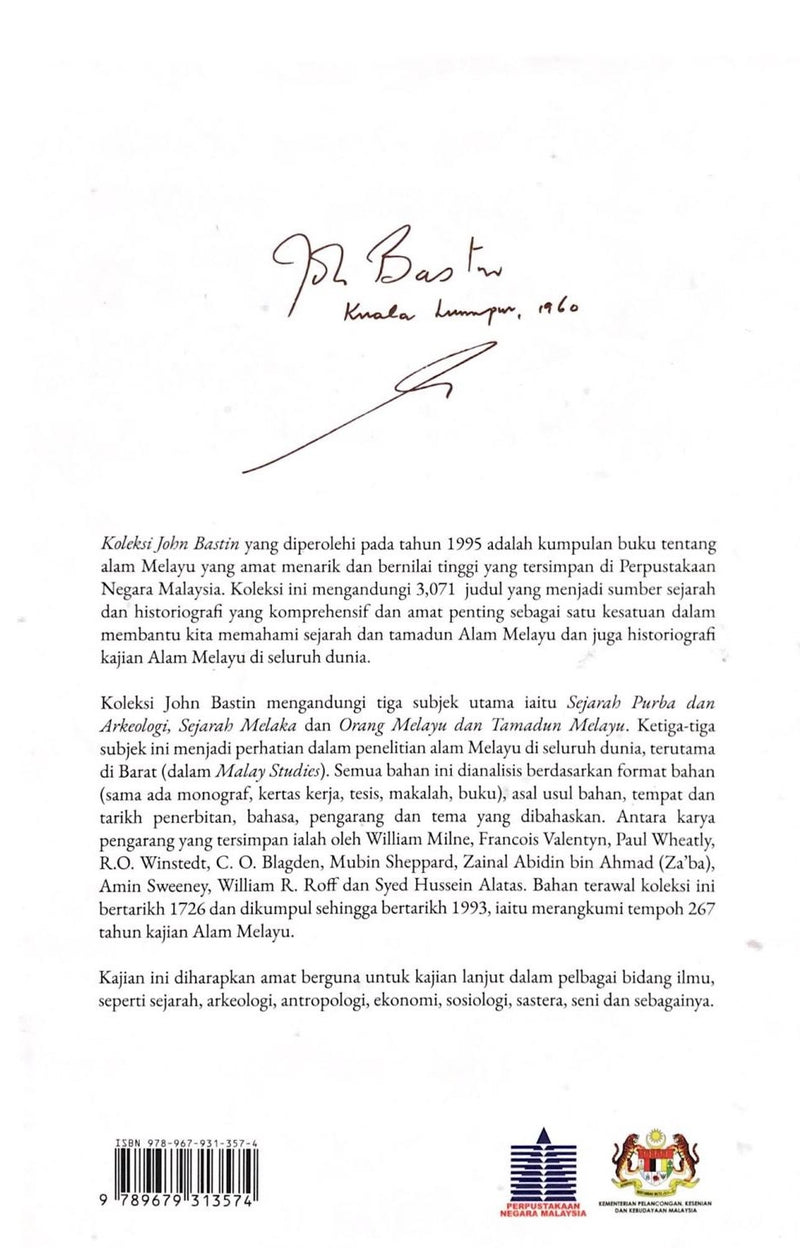 John Bastin
Kuala Lumpur, 1960
Koleksi John Bastin yang diperolehi pada tahun 1995 adalah kumpulan buku tentang
alam Melayu yang amat menarik dan bernilai tinggi yang tersimpan di Perpustakaan
Negara Malaysia. Koleksi ini mengandungi 3,071 judul yang menjadi sumber sejarah
dan historiografi yang komprehensif dan amat penting sebagai satu kesatuan dalam
membantu kita memahami sejarah dan tamadun Alam Melayu dan juga historiografi
kajian Alam Melayu di seluruh dunia.
Koleksi John Bastin mengandungi tiga subjek utama iaitu Sejarah Purba dan
Arkeologi, Sejarah Melaka dan Orang Melayu dan Tamadun Melayu. Ketiga-tiga
subjek ini menjadi perhatian dalam penelitian alam Melayu di seluruh dunia, terutama
di Barat (dalam Malay Studies). Semua bahan ini dianalisis berdasarkan format bahan
(sama ada monograf, kertas kerja, tesis, makalah, buku), asal usul bahan, tempat dan
tarikh penerbitan, bahasa, pengarang dan tema yang dibahaskan. Antara karya
pengarang yang tersimpan ialah oleh William Milne, Francois Valentyn, Paul Wheatly,
R.O. Winstedt, C. O. Blagden, Mubin Sheppard, Zainal Abidin bin Ahmad (Za'ba),
Amin Sweeney, William R. Roff dan Syed Hussein Alatas. Bahan terawal koleksi ini
bertarikh 1726 dan dikumpul sehingga bertarikh 1993, iaitu merangkumi tempoh 267
tahun kajian Alam Melayu.
Kajian ini diharapkan amat berguna untuk kajian lanjut dalam pelbagai bidang ilmu,
seperti sejarah, arkeologi, antropologi, ekonomi, sosiologi, sastera, seni dan sebagainya.
ISBN 978-967-931-357-4
9 789679 313574
PERPUSTAKAAN
NEGARA MALAYSIA
KEMENTERIAN PELANCONGAN, KESENIAN
DAN KEBUDAYAAN MALAYSIA